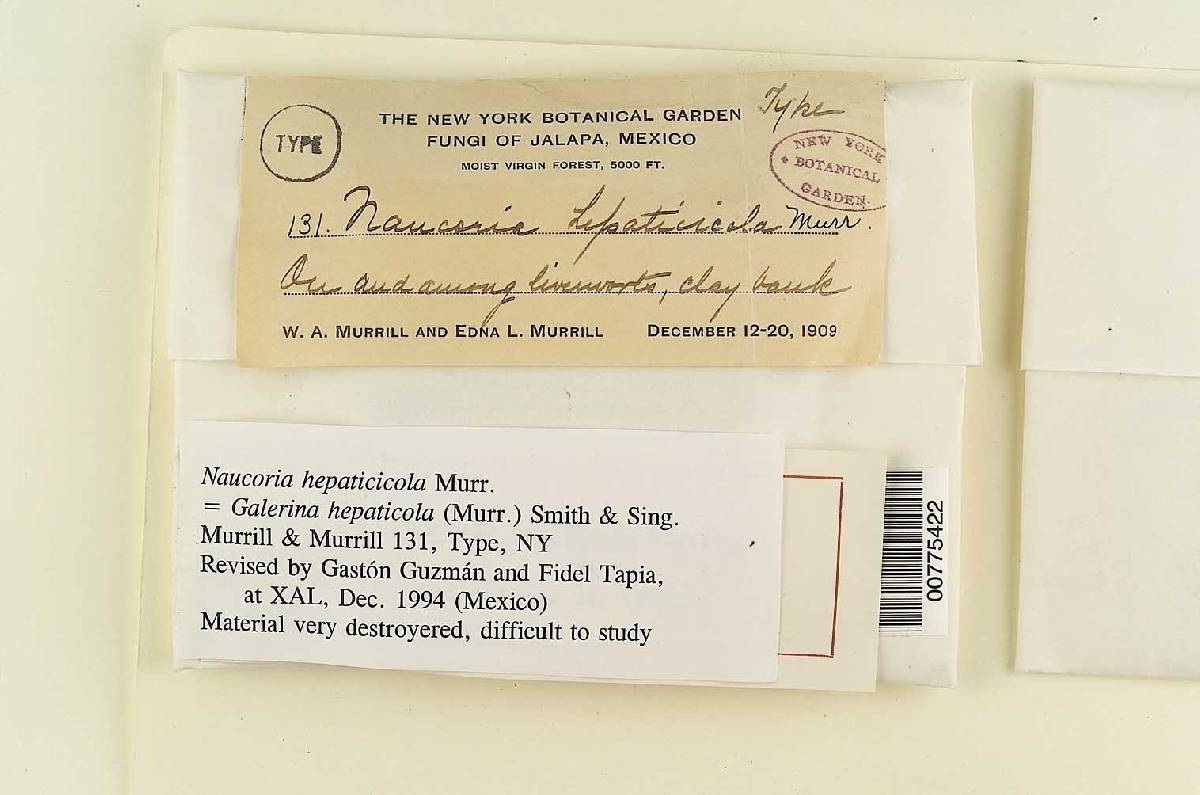 Type
TYPE
THE NEW YORK BOTANICAL GARDEN
FUNGI OF JALAPA, MEXICO
MOIST VIRGIN FOREST, 5000 FT.
NEW YORK
BOTANICAL
GARDEN.
131. Naucoria hepaticicola Murr.
On and among liverworts, clay bank
W. A. MURRILL AND EDNA L. MURRILL DECEMBER 12-20, 1909
Naucoria hepaticicola Murr.
= Galerina hepaticola (Murr.) Smith & Sing.
Murrill & Murrill 131, Type, NY
Revised by Gastón Guzmán and Fidel Tapia,
at XAL, Dec. 1994 (Mexico)
Material very destroyered, difficult to study
00775422